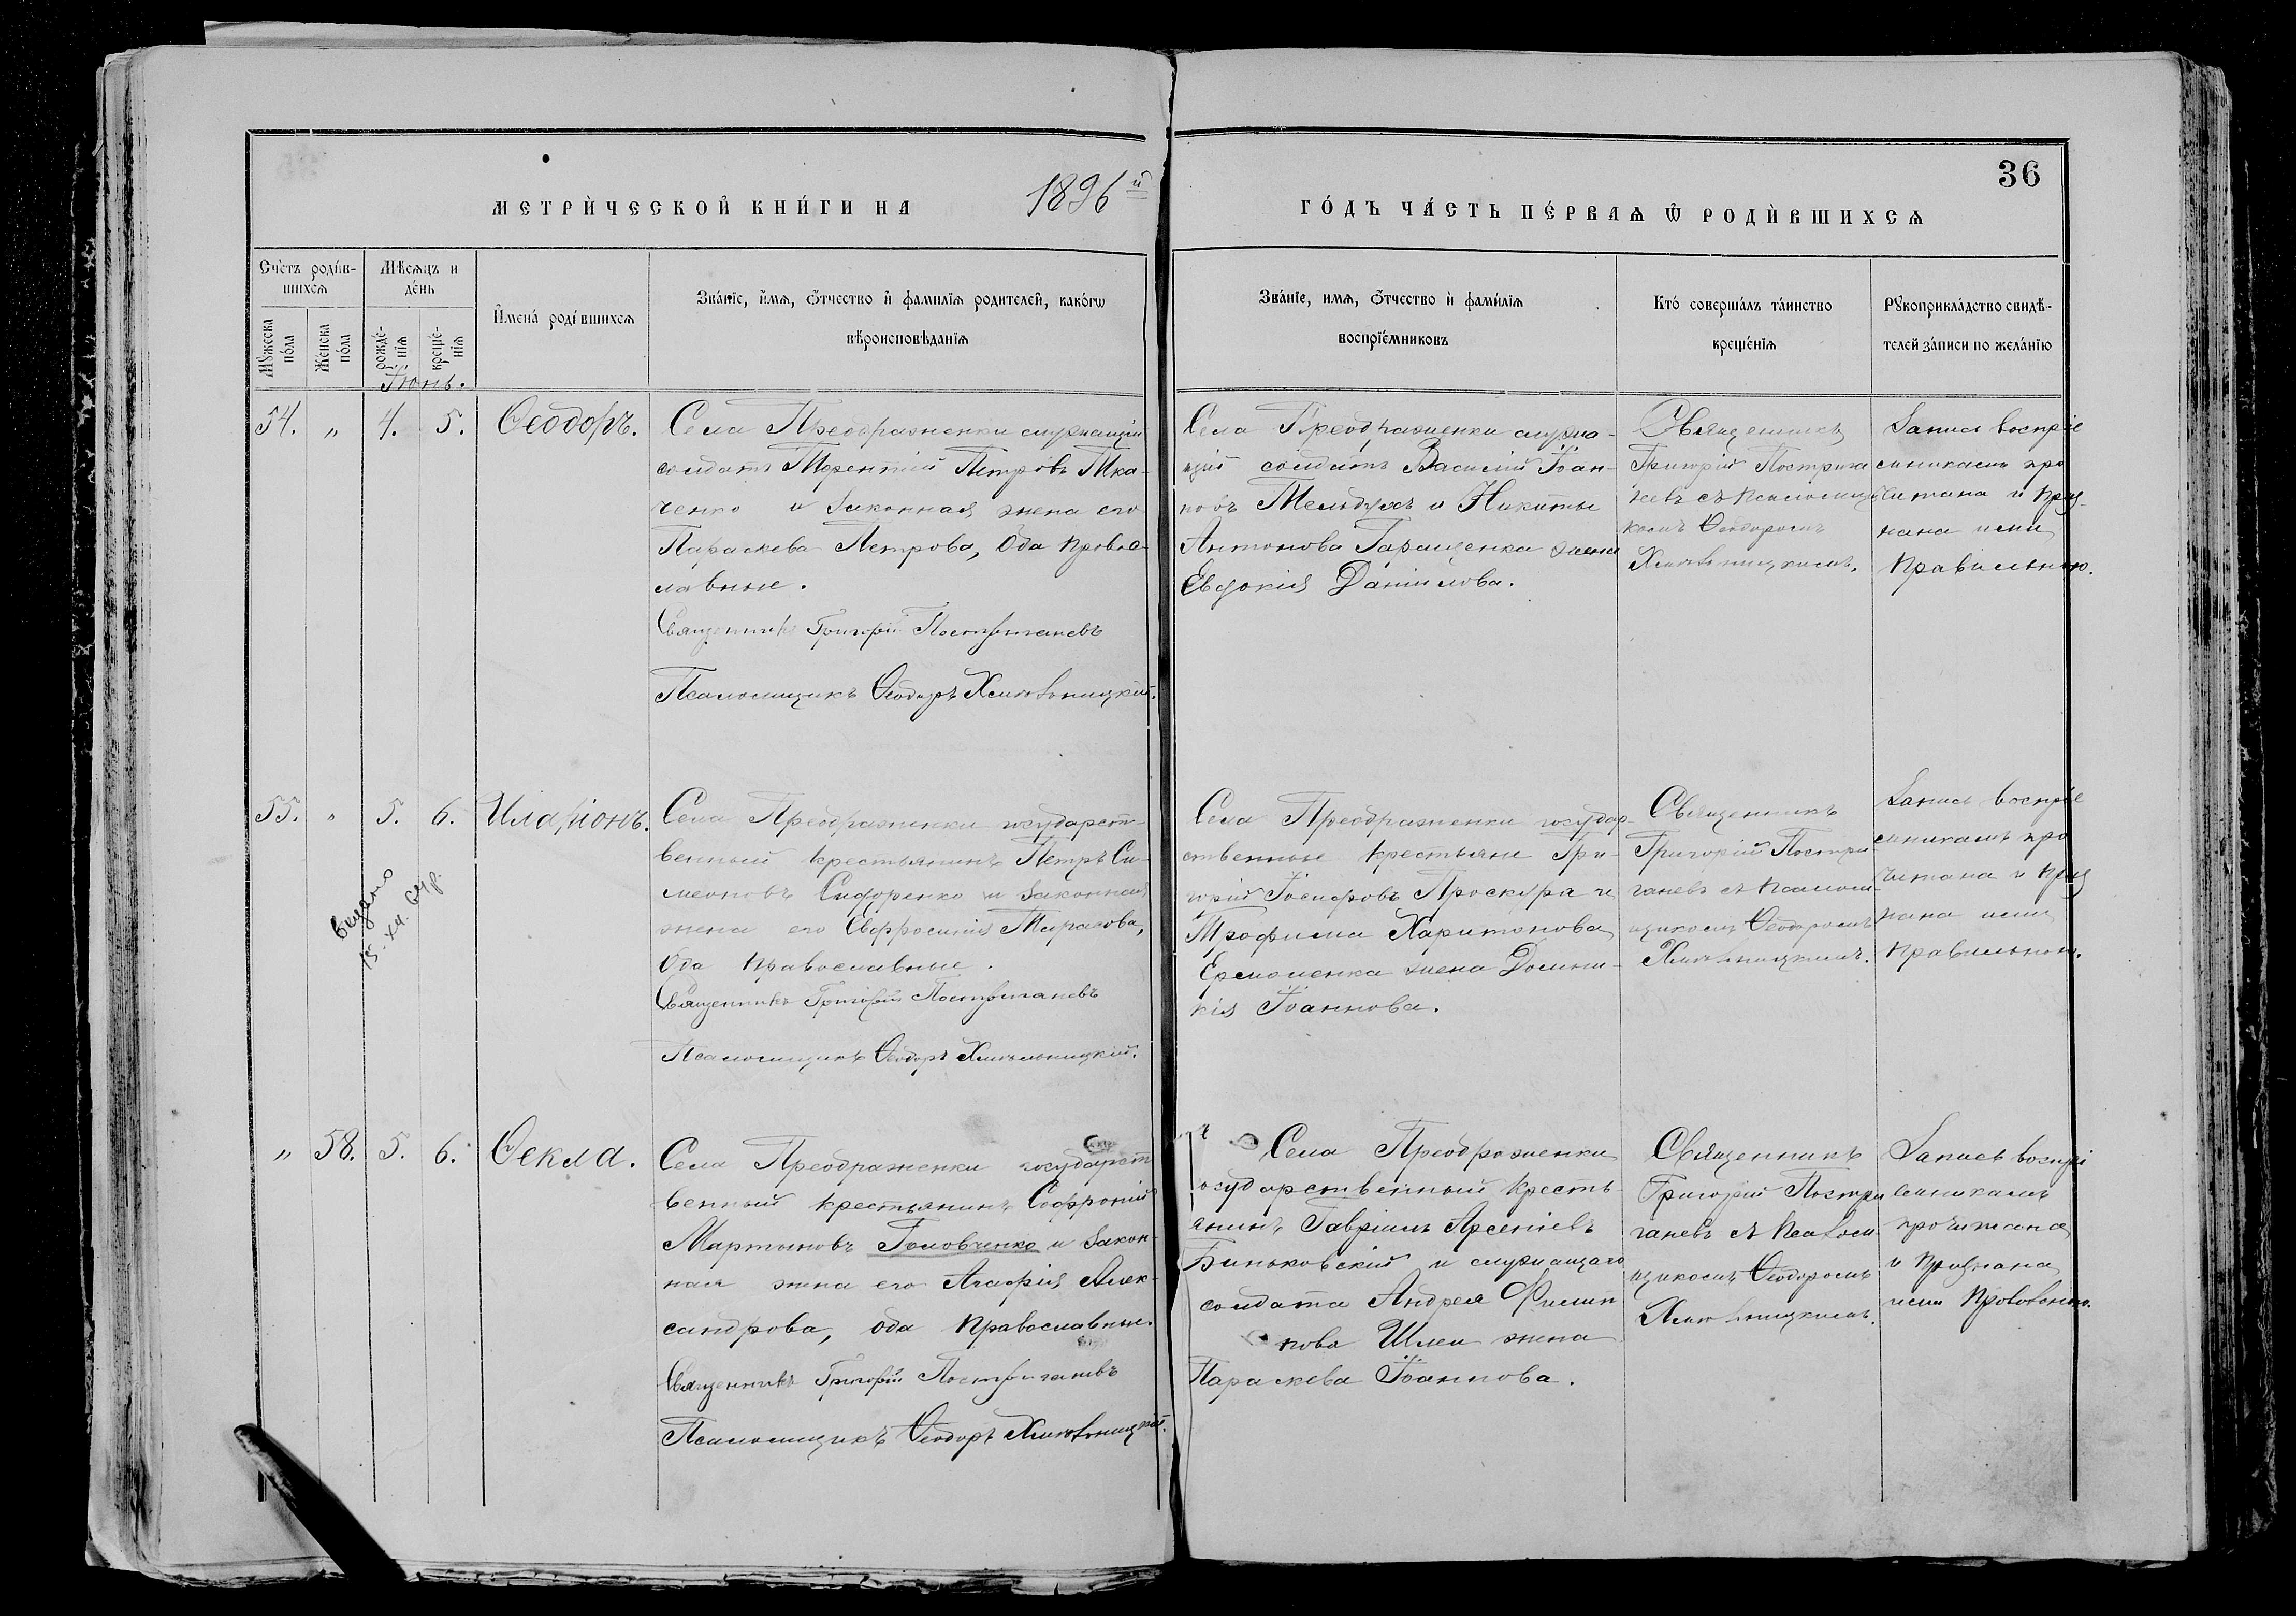 36
МЕТРИ́ЧЕСКОЙ КНИ́ГИ НА 1896й
ГО́ДЪ ЧА́СТЬ ПЕ́РВАѦ Ѿ РОДИ́ВШИХСѦ
Сче́тъ роди́в-
шихсѧ
Мѣсѧцъ и
де́нь
Мꙋжеска
по́ла
Женска
по́ла
рожде́-
нїѧ
креще́-
нїѧ
И҆мена́ роди́вшихсѧ
Зва́нїе, и҆́мѧ, ѻ҆́тчество и҆ фамилїѧ родителей, како́гѡ
вѣроисповѣданїѧ
Зва́нїе, имѧ, ѻ҆́тчество и҆ фами́лїѧ
воспрїе́мниковъ
Кто́ соверша́лъ та́инство
креще́нїѧ
Рꙋкоприкла́дство свидѣ-
телей за́писи по жела́нїю
Іюнь.
54. „ 4. 5. Ѳеодоръ.
Села Преображенки служащій
солдатъ Терентій Петровъ Тка-
ченко и законная жена его
Параскева Петрова, оба право-
славные.
Священникъ Григорій Постриганевъ
Псаломщикъ Ѳеодоръ Хмѣльницкій.
Села Преображенки служа-
щій солдатъ Василій Іоан-
новъ Мельдухъ и Никиты
Антонова Гаращенка жена
Евдокія Даніилова.
Священникъ
Григорій Пострига
невъ съ псаломщи
комъ Ѳеодоромъ
Хмѣльницкимъ.
Запись воспріе
мникамъ про
читана и приз-
нана ими
правильною.
55. „ 5. 6. Иларіонъ.
Села Преображенки государст-
венный крестьянинъ Петръ Си-
меоновъ Сидоренко и законная
жена его Евфросинія Тарасова,
оба православные.
Священникъ Григорій Постриганевъ
Псаломщикъ Ѳеодоръ Хмѣльницкій.
видано
15. XII. 64 р.
Села Преображенки государ
ственные крестьяне Гри-
горій Іосифовъ Проскура и
Трофима Харитонова
Ермоленка жена Домни-
кія Іоаннова.
Священникъ
Григорій Постри
ганевъ съ псалом-
щикомъ Ѳеодоромъ
Хмѣльницкимъ.
Запись воспріе
мникамъ про
читана и приз
нана ими
правильною.
„ 58. 5. 6. Ѳекла.
Села Преображенки государст
венный крестьянинъ Софроній
Мартыновъ Головченко и закон-
ная жена его Агафія Алек-
сандрова, оба православные.
Священникъ Григорій Постриганевъ
Псаломщикъ Ѳеодоръ Хмѣльницкій.
Села Преображенки
государственный кресть-
янинъ Гавріилъ Арсеніевъ
Биньковскій и служащаго
солдата Андрея Филип
пова Шлеи жена
Параскева Іоаннова.
Священникъ
Григорій Постри
ганевъ съ псалом-
щикомъ Ѳеодоромъ
Хмѣльницкимъ.
Запись воспрі
емникамъ
прочитана
и признана
ими правильною.